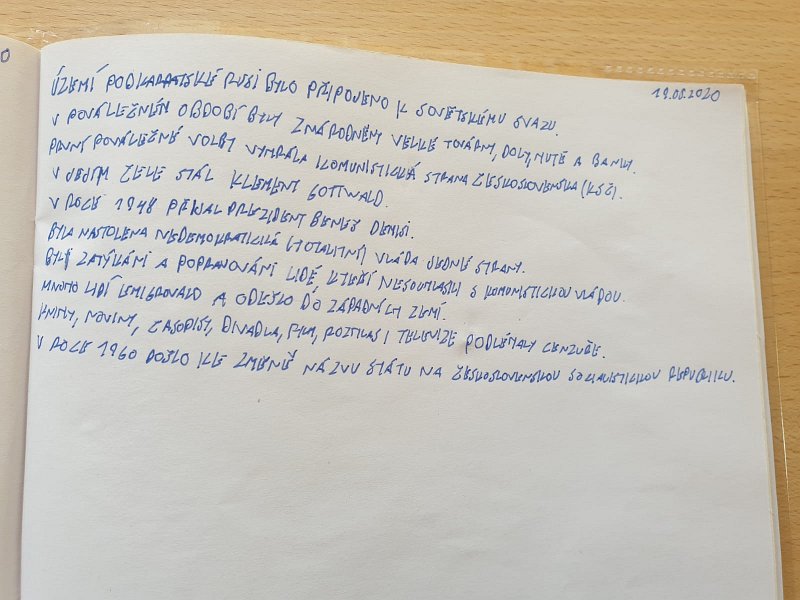 19.05.2020
ÚZEMÍ PODKARPATSKÉ RUSI BYLO PŘIPOJENO K SOVĚTSKÉMU SVAZU.
V POVÁLEČNÉM OBDOBÍ BYLY ZNÁRODNĚNY VELKÉ TOVÁRNY, DOLY, HUTĚ A BANKY.
PRVNÍ POVÁLEČNÉ VOLBY VYHRÁLA KOMUNISTICKÁ STRANA ČESKOSLOVENSKA (KSČ).
V JEJÍM ČELE STÁL KLEMENT GOTTWALD.
V ROCE 1948 PŘIJAL PREZIDENT BENEŠ DEMISI.
BYLA NASTOLENA NEDEMOKRATICKÁ (TOTALITNÍ) VLÁDA JEDNÉ STRANY.
BYLI ZATÝKÁNI A POPRAVOVÁNI LIDÉ, KTEŘÍ NESOUHLASILI S KOMUNISTICKOU VLÁDOU.
MNOHO LIDÍ EMIGROVALO A ODEŠLO DO ZÁPADNÍCH ZEMÍ.
KNIHY, NOVINY, ČASOPISY, DIVADLA, FILMY, ROZHLAS I TELEVIZE PODLÉHALY CENZUŘE.
V ROCE 1960 DOŠLO KE ZMĚNĚ NÁZVU STÁTU NA ČESKOSLOVENSKOU SOCIALISTICKOU REPUBLIKU.